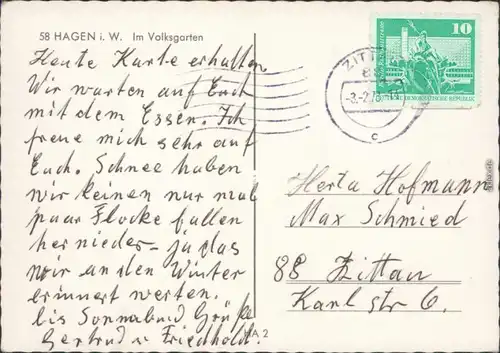 58 HAGEN i. W. Im Volksgarten
Heute Karte erhalten.
Wir warten auf Euch
mit dem Essen. Ich
freue mich sehr auf
Euch. Schnee haben
wir keinen nur mal
paar Flocke fallen
hernieder - ja das
wir an den Winter
erinnert werten.
bis Sonnabend Grüße
Gertrud u Friedhold.
HA 2
10
DEMOKRATISCHE REPUBLIK
ZITT
-3.-2.78.-17
c
Herta Hofmann
Max Schmied
88 Zittau
Karl str 6.